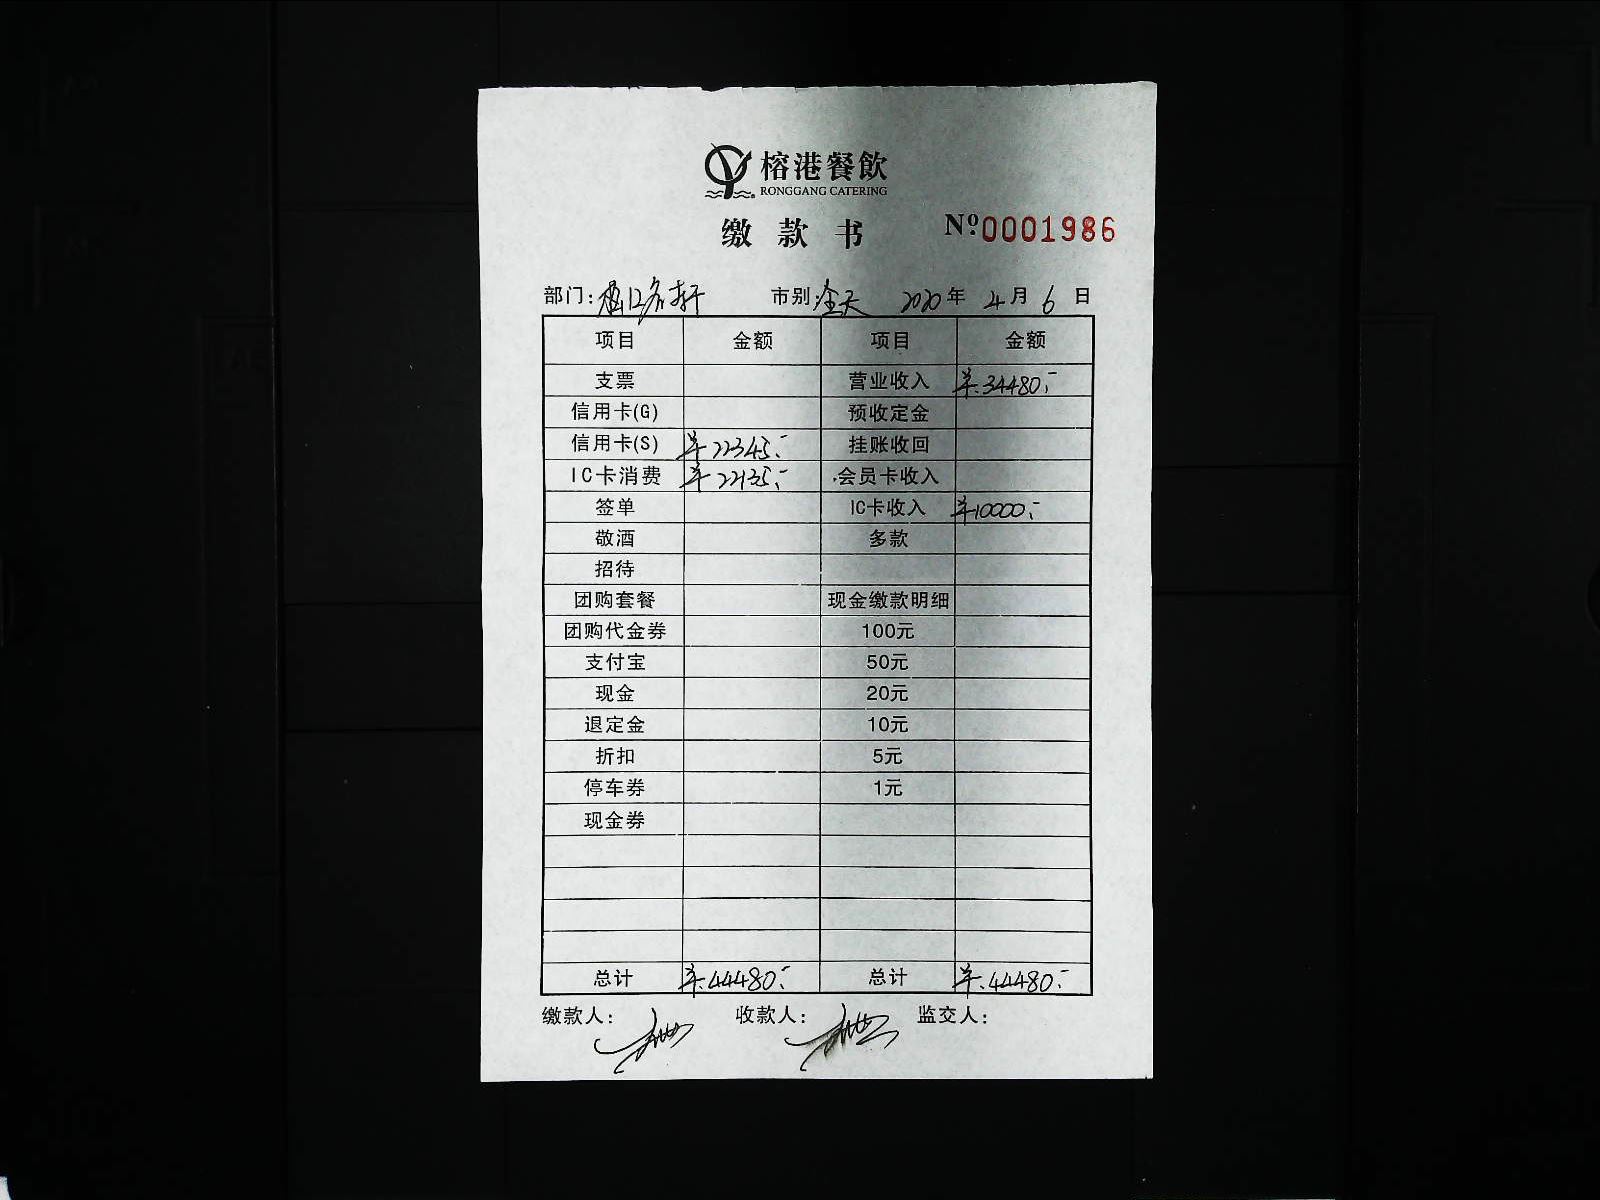 榕港餐飲
RONGGANG CATERING
缴款书 Nº0001986
部门: 市别:全天 2020年4月6日
项目 金额 项目 金额
支票 营业收入 ¥34480.-
信用卡(G) 预收定金
信用卡(S) ¥22345.- 挂账收回
IC卡消费 ¥22135.- 会员卡收入
签单 IC卡收入 ¥10000.-
敬酒 多款
招待
团购套餐 现金缴款明细
团购代金券 100元
支付宝 50元
现金 20元
退定金 10元
折扣 5元
停车券 1元
现金券
总计 ¥44480.- 总计 ¥44480.-
缴款人: 收款人: 监交人: